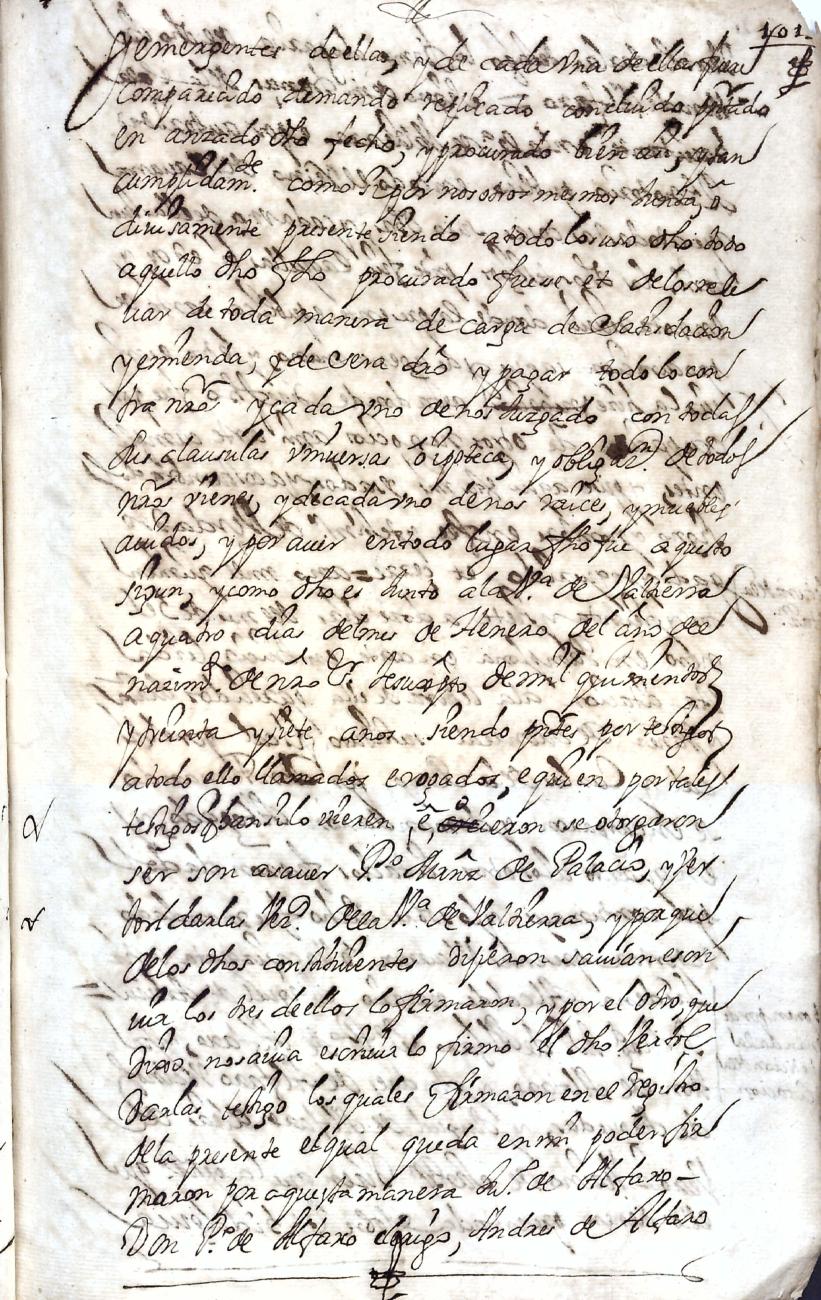 101
y emergentes de ellas, y de cada vna de ellas fuere
comparecido, demando replicado concluido
en anzado dho fecho, y procurado bien assi, y tan
cumplidamte. como si por nosotros mesmos
diuisamente presente siendo a todo lo suso dho todo
aquello dho fho procurado fuere et de los rele
uar de toda manera de carga de Satisdacion
y emienda, q de esera dro y pagar todo lo con
tra nros y cada vno de nos Juzgado con todas
sus clausulas vniuersas, ò ipoteca, y obligaon. de todos
nros vienes, y de cada vno de nos raices, y muebles
auidos, y por auer en todo lugar fho fue aquesto
segun, y como dho es Junto a la Va. de Valtierra
a quatro, dias del mes de Henero del año del
nacimto. de nro Sr. Jesuxpto de mil quinientos
y treinta y siete anos siendo ptes por testigos
a todo ello llamados erogados, e quien por tales
testigos se lo vieren, è uieron se otorgaron
ser son asauer Po. Mañz de Palacio, y Ver
tol darlas Vezo. de la Va. de Valtierra, y porque
de los dhos constituientes dijeron sauian escri
uir los tres de ellos lo firmaron, y por el otro, que
dixo no sauia escriuir lo firmo el dho Vertol
Darlas testigo los quales firmaron en el Registro
de la presente el qual queda en mi poder fir
maron por aquesta manera de Alfaro -
Don Po. de Alfaro clerigo, Andres de Alfaro